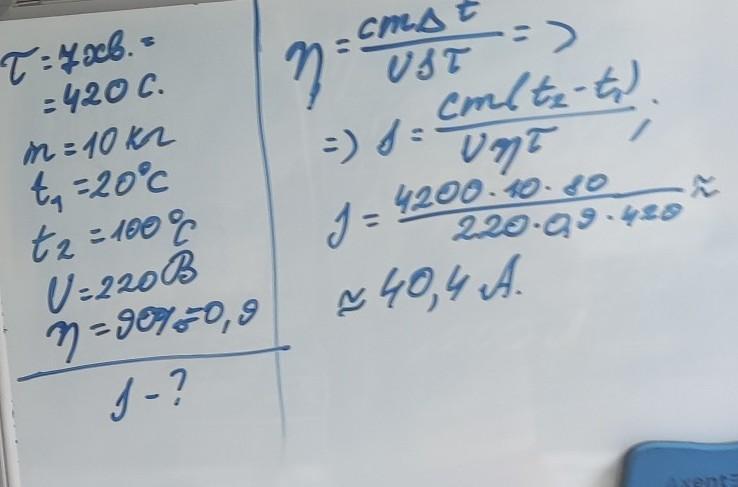 τ = 7 хв. =
= 420 с.
m = 10 кг
t₁ = 20°C
t₂ = 100°C
U = 220 В
η = 90% = 0,9
I - ?
η = cmΔt / UIτ = >
=> I = cm(t₂ - t₁) / Uητ ;
I = 4200·10·80 / 220·0,9·420 ≈
≈ 40,4 A.